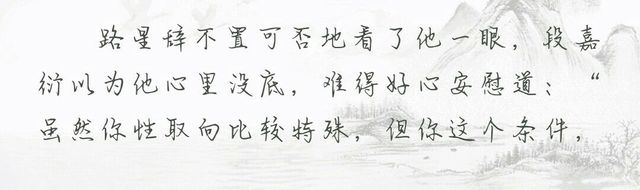 路星辞不置可否地看了他一眼，段嘉
衍以为他心里没底，难得好心安慰道：“
虽然你性取向比较特殊，但你这个条件，